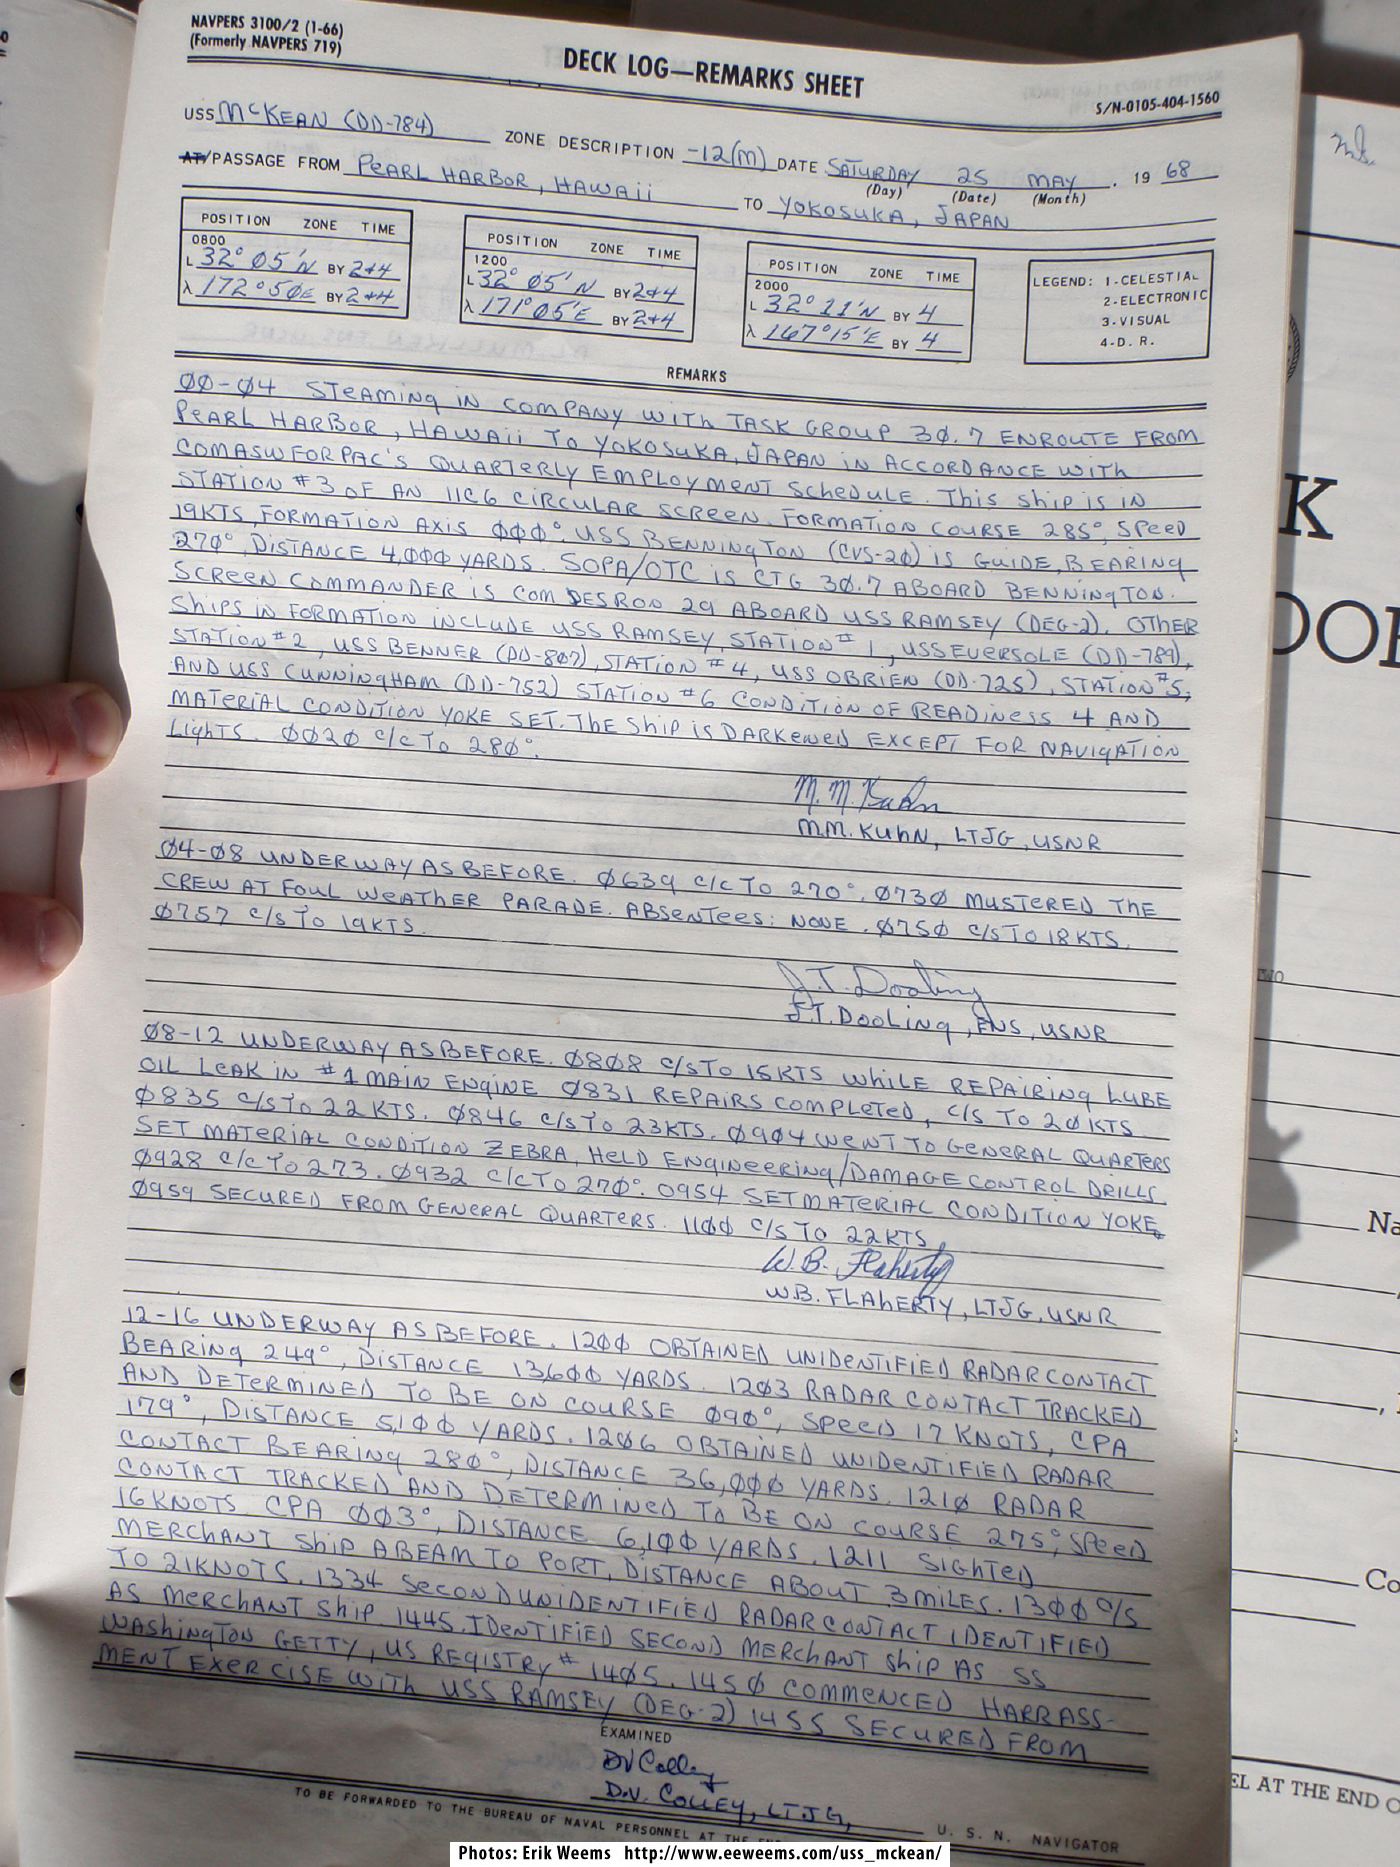 NAVPERS 3100/2 (1-66)
(Formerly NAVPERS 719)
DECK LOG—REMARKS SHEET
S/N-0105-404-1560
USS McKEAN (DD-784) ZONE DESCRIPTION -12(M) DATE SATURDAY 25 MAY . 19 68
(Day) (Date) (Month)
AT/PASSAGE FROM PEARL HARBOR, HAWAII TO YOKOSUKA, JAPAN
POSITION ZONE TIME
0800
L 32° 05'N BY 2+4
λ 172° 50E BY 2+4
POSITION ZONE TIME
1200
L 32° 05'N BY 2+4
λ 171° 05'E BY 2+4
POSITION ZONE TIME
2000
L 32° 11'N BY 4
λ 167° 15'E BY 4
LEGEND: 1-CELESTIAL
2-ELECTRONIC
3-VISUAL
4-D. R.
REMARKS
00-04 STEAMING IN COMPANY WITH TASK GROUP 30.7 ENROUTE FROM
PEARL HARBOR, HAWAII TO YOKOSUKA, JAPAN IN ACCORDANCE WITH
COMASWFORPAC'S QUARTERLY EMPLOYMENT SCHEDULE. THIS SHIP IS IN
STATION #3 OF AN 11C6 CIRCULAR SCREEN. FORMATION COURSE 285°, SPEED
19KTS, FORMATION AXIS 000°. USS BENNINGTON (CVS-20) IS GUIDE, BEARING
270°, DISTANCE 4,000 YARDS. SOPA/OTC IS CTG 30.7 ABOARD BENNINGTON.
SCREEN COMMANDER IS COM DESRON 29 ABOARD USS RAMSEY (DEG-2). OTHER
SHIPS IN FORMATION INCLUDE USS RAMSEY, STATION #1, USS EVERSOLE (DD-789),
STATION #2, USS BENNER (DD-807), STATION #4, USS OBRIEN (DD-725), STATION #5,
AND USS CUNNINGHAM (DD-752) STATION #6 CONDITION OF READINESS 4 AND
MATERIAL CONDITION YOKE SET. THE SHIP IS DARKENED EXCEPT FOR NAVIGATION
LIGHTS. 0020 C/C TO 280°.
M. M. Kuhn
M.M. KUHN, LTJG, USNR
04-08 UNDERWAY AS BEFORE. 0639 C/C TO 270°. 0730 MUSTERED THE
CREW AT FOUL WEATHER PARADE. ABSENTEES: NONE. 0750 C/S TO 18KTS.
0757 C/S TO 19KTS.
J. T. Dooling
J.T. DOOLING, ENS, USNR
08-12 UNDERWAY AS BEFORE. 0808 C/S TO 15KTS WHILE REPAIRING LUBE
OIL LEAK IN #1 MAIN ENGINE 0831 REPAIRS COMPLETED, C/S TO 20KTS
0835 C/S TO 22KTS. 0846 C/S TO 23KTS. 0904 WENT TO GENERAL QUARTERS
SET MATERIAL CONDITION ZEBRA, HELD ENGINEERING/DAMAGE CONTROL DRILLS.
0928 C/C TO 273. 0932 C/C TO 270°. 0954 SET MATERIAL CONDITION YOKE
0959 SECURED FROM GENERAL QUARTERS. 1100 C/S TO 22KTS,
W. B. Flaherty
W.B. FLAHERTY, LTJG, USNR
12-16 UNDERWAY AS BEFORE. 1200 OBTAINED UNIDENTIFIED RADAR CONTACT
BEARING 249°, DISTANCE 13600 YARDS. 1203 RADAR CONTACT TRACKED
AND DETERMINED TO BE ON COURSE 090°, SPEED 17 KNOTS, CPA
179°, DISTANCE 5,100 YARDS. 1206 OBTAINED UNIDENTIFIED RADAR
CONTACT BEARING 280°, DISTANCE 36,000 YARDS. 1210 RADAR
CONTACT TRACKED AND DETERMINED TO BE ON COURSE 275°, SPEED
16 KNOTS CPA 003°, DISTANCE 6,100 YARDS. 1211 SIGHTED
MERCHANT SHIP ABEAM TO PORT, DISTANCE ABOUT 3 MILES. 1300 C/S
TO 21KNOTS. 1334 SECOND UNIDENTIFIED RADAR CONTACT IDENTIFIED
AS MERCHANT SHIP 1445. IDENTIFIED SECOND MERCHANT SHIP AS SS
WASHINGTON GETTY, US REGISTRY # 1405. 1450 COMMENCED HARRASS-
MENT EXERCISE WITH USS RAMSEY (DEG-2) 1455 SECURED FROM
EXAMINED
DV Colley
D.V. COLLEY, LTJG, U. S. N. NAVIGATOR
TO BE FORWARDED TO THE BUREAU OF NAVAL PERSONNEL AT THE
K
OO
Na
Co
EL AT THE END O
Photos: Erik Weems http://www.eeweems.com/uss_mckean/